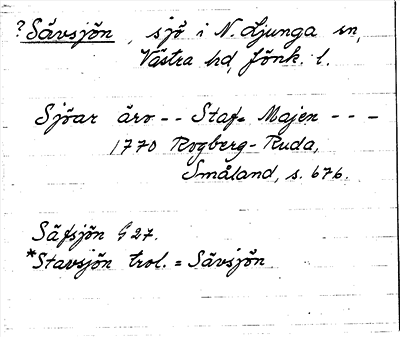 ? Sävsjön, sjö i N. Ljunga sn,
Västra hd, Jönk. l.
Sjöar äro -- Staf= Majen ---
1770 Rogberg-Ruda,
Småland, s. 676.
Säfsjön G 27.
*Stavsjön trol. = Sävsjön